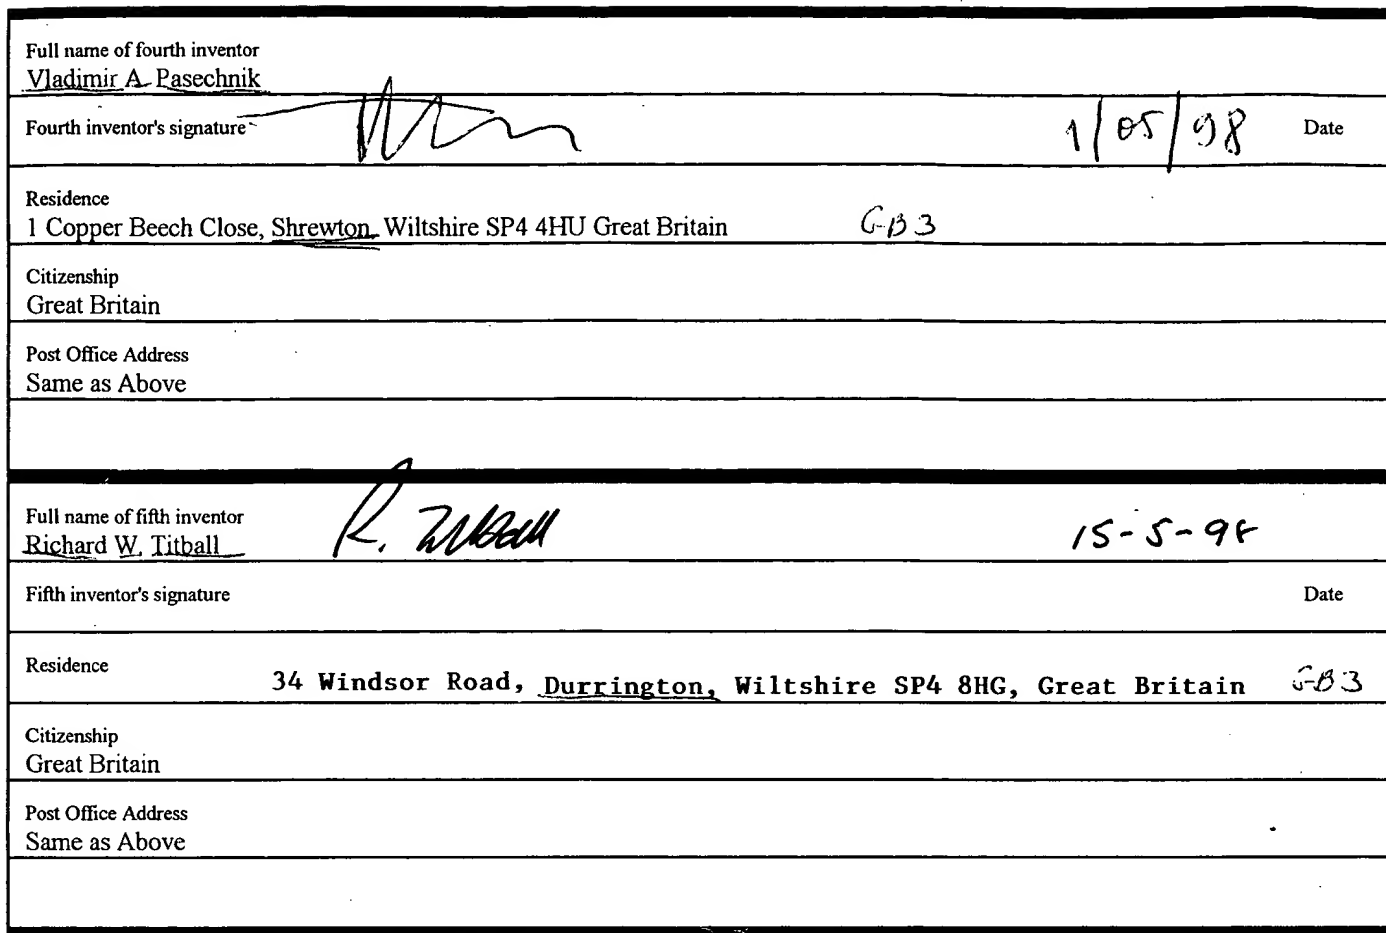 Full name of fourth inventor
Vladimir A. Pasechnik
Fourth inventor's signature
1/05/98 Date
Residence
1 Copper Beech Close, Shrewton, Wiltshire SP4 4HU Great Britain GB3
Citizenship
Great Britain
Post Office Address
Same as Above
Full name of fifth inventor
R. Titball
Richard W. Titball
15-5-98
Fifth inventor's signature Date
Residence
34 Windsor Road, Durrington, Wiltshire SP4 8HG, Great Britain GB3
Citizenship
Great Britain
Post Office Address
Same as Above